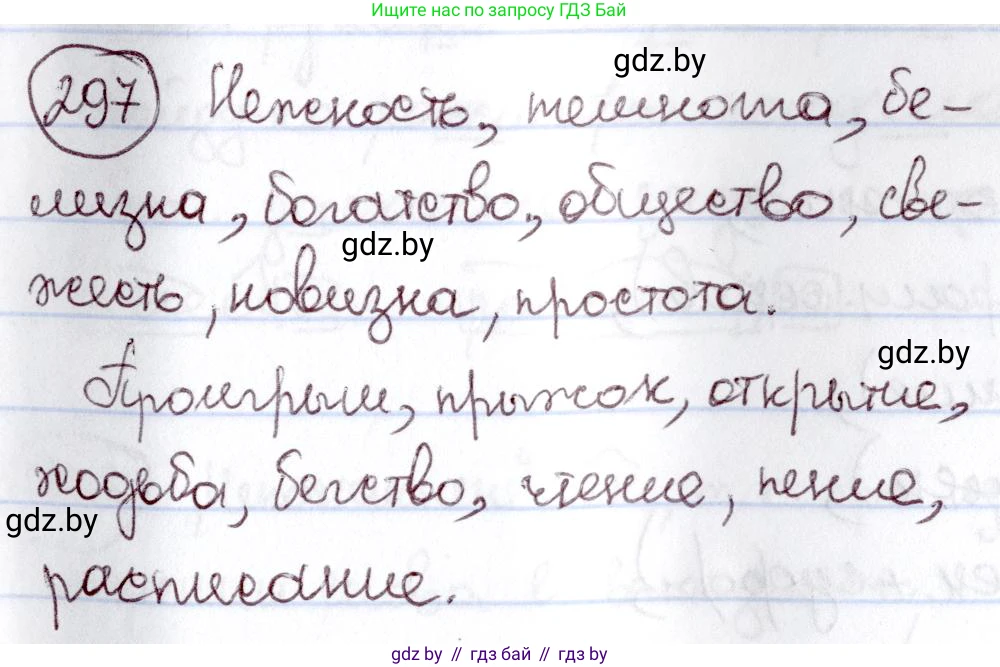 Ищите нас по запросу ГДЗ Бай
gdz.by
297 Нежность, темнота, бе-
лизна, богатство, общество, све-
gdz.by
жесть, новизна, простота.
gdz.by
Проигрыш, прыжок, открытие,
ходьба, бегство, чтение, пение,
gdz.by
расписание.
gdz.by // гдз бай // gdz.by